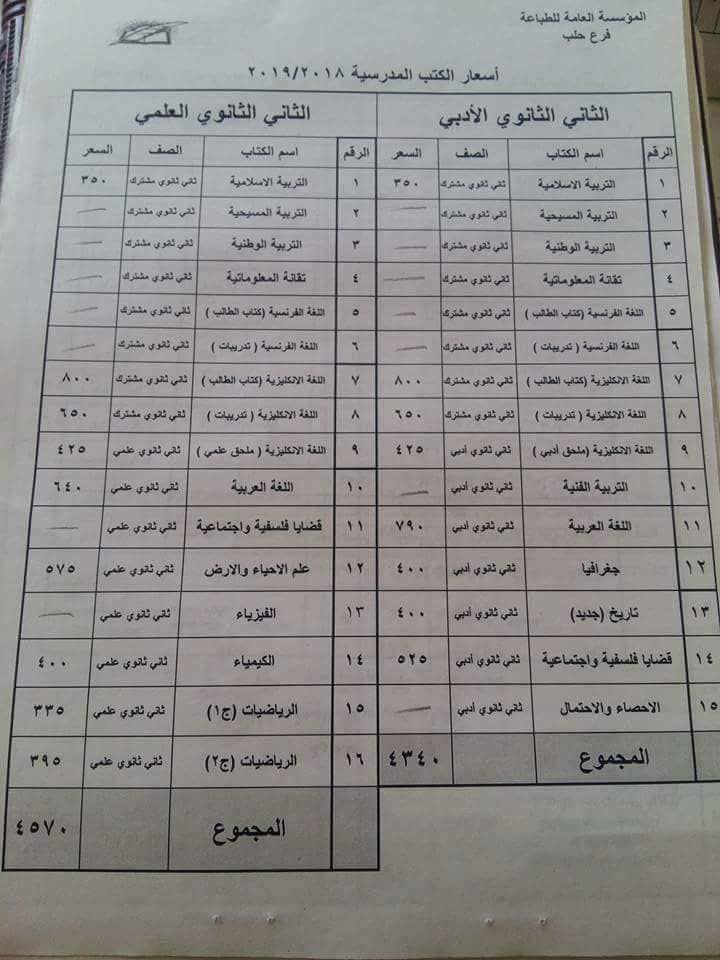 المؤسسة العامة للطباعة
فرع حلب
أسعار الكتب المدرسية ٢٠١٩/٢٠١٨
الثاني الثانوي الأدبي
الرقم اسم الكتاب الصف السعر
١ التربية الاسلامية ثاني ثانوي مشترك ٣٥٠
٢ التربية المسيحية ثاني ثانوي مشترك —
٣ التربية الوطنية ثاني ثانوي مشترك —
٤ تقانة المعلوماتية ثاني ثانوي مشترك —
٥ اللغة الفرنسية (كتاب الطالب ) ثاني ثانوي مشترك —
٦ اللغة الفرنسية ( تدريبات ) ثاني ثانوي مشترك —
٧ اللغة الانكليزية (كتاب الطالب ) ثاني ثانوي مشترك ٨٠٠
٨ اللغة الانكليزية ( تدريبات ) ثاني ثانوي مشترك ٦٥٠
٩ اللغة الانكليزية (ملحق أدبي ) ثاني ثانوي أدبي ٤٢٥
١٠ التربية الفنية ثاني ثانوي أدبي —
١١ اللغة العربية ثاني ثانوي أدبي ٧٩٠
١٢ جغرافيا ثاني ثانوي أدبي ٤٠٠
١٣ تاريخ (جديد) ثاني ثانوي أدبي ٤٠٠
١٤ قضايا فلسفية واجتماعية ثاني ثانوي أدبي ٥٢٥
١٥ الاحصاء والاحتمال ثاني ثانوي أدبي —
المجموع ٤٣٤٠
الثاني الثانوي العلمي
الرقم اسم الكتاب الصف السعر
١ التربية الاسلامية ثاني ثانوي مشترك ٣٥٠
٢ التربية المسيحية ثاني ثانوي مشترك —
٣ التربية الوطنية ثاني ثانوي مشترك —
٤ تقانة المعلوماتية ثاني ثانوي مشترك —
٥ اللغة الفرنسية (كتاب الطالب ) ثاني ثانوي مشترك —
٦ اللغة الفرنسية ( تدريبات ) ثاني ثانوي مشترك —
٧ اللغة الانكليزية (كتاب الطالب ) ثاني ثانوي مشترك ٨٠٠
٨ اللغة الانكليزية ( تدريبات ) ثاني ثانوي مشترك ٦٥٠
٩ اللغة الانكليزية ( ملحق علمي ) ثاني ثانوي علمي ٤٢٥
١٠ اللغة العربية ثاني ثانوي علمي ٦٤٠
١١ قضايا فلسفية واجتماعية ثاني ثانوي علمي —
١٢ علم الاحياء والارض ثاني ثانوي علمي ٥٧٥
١٣ الفيزياء ثاني ثانوي علمي —
١٤ الكيمياء ثاني ثانوي علمي ٤٠٠
١٥ الرياضيات (ج١) ثاني ثانوي علمي ٣٣٥
١٦ الرياضيات (ج٢) ثاني ثانوي علمي ٣٩٥
المجموع ٤٥٧٠